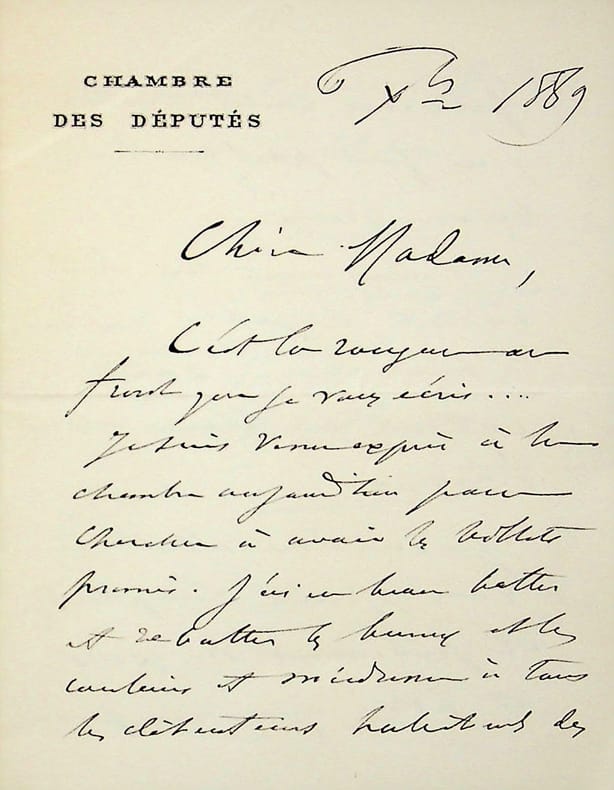 CHAMBRE
DES DÉPUTÉS
Xbre 1889
Chère Madame,
C'est la rougeur au
front que je vous écris....
Je suis venu exprès à la
chambre aujourd'hui pour
chercher à avoir les billets
promis. J'ai eu beau battre
et rebattre les bureaux et les
couloirs et m'adresser à tous
les détenteurs habituels des